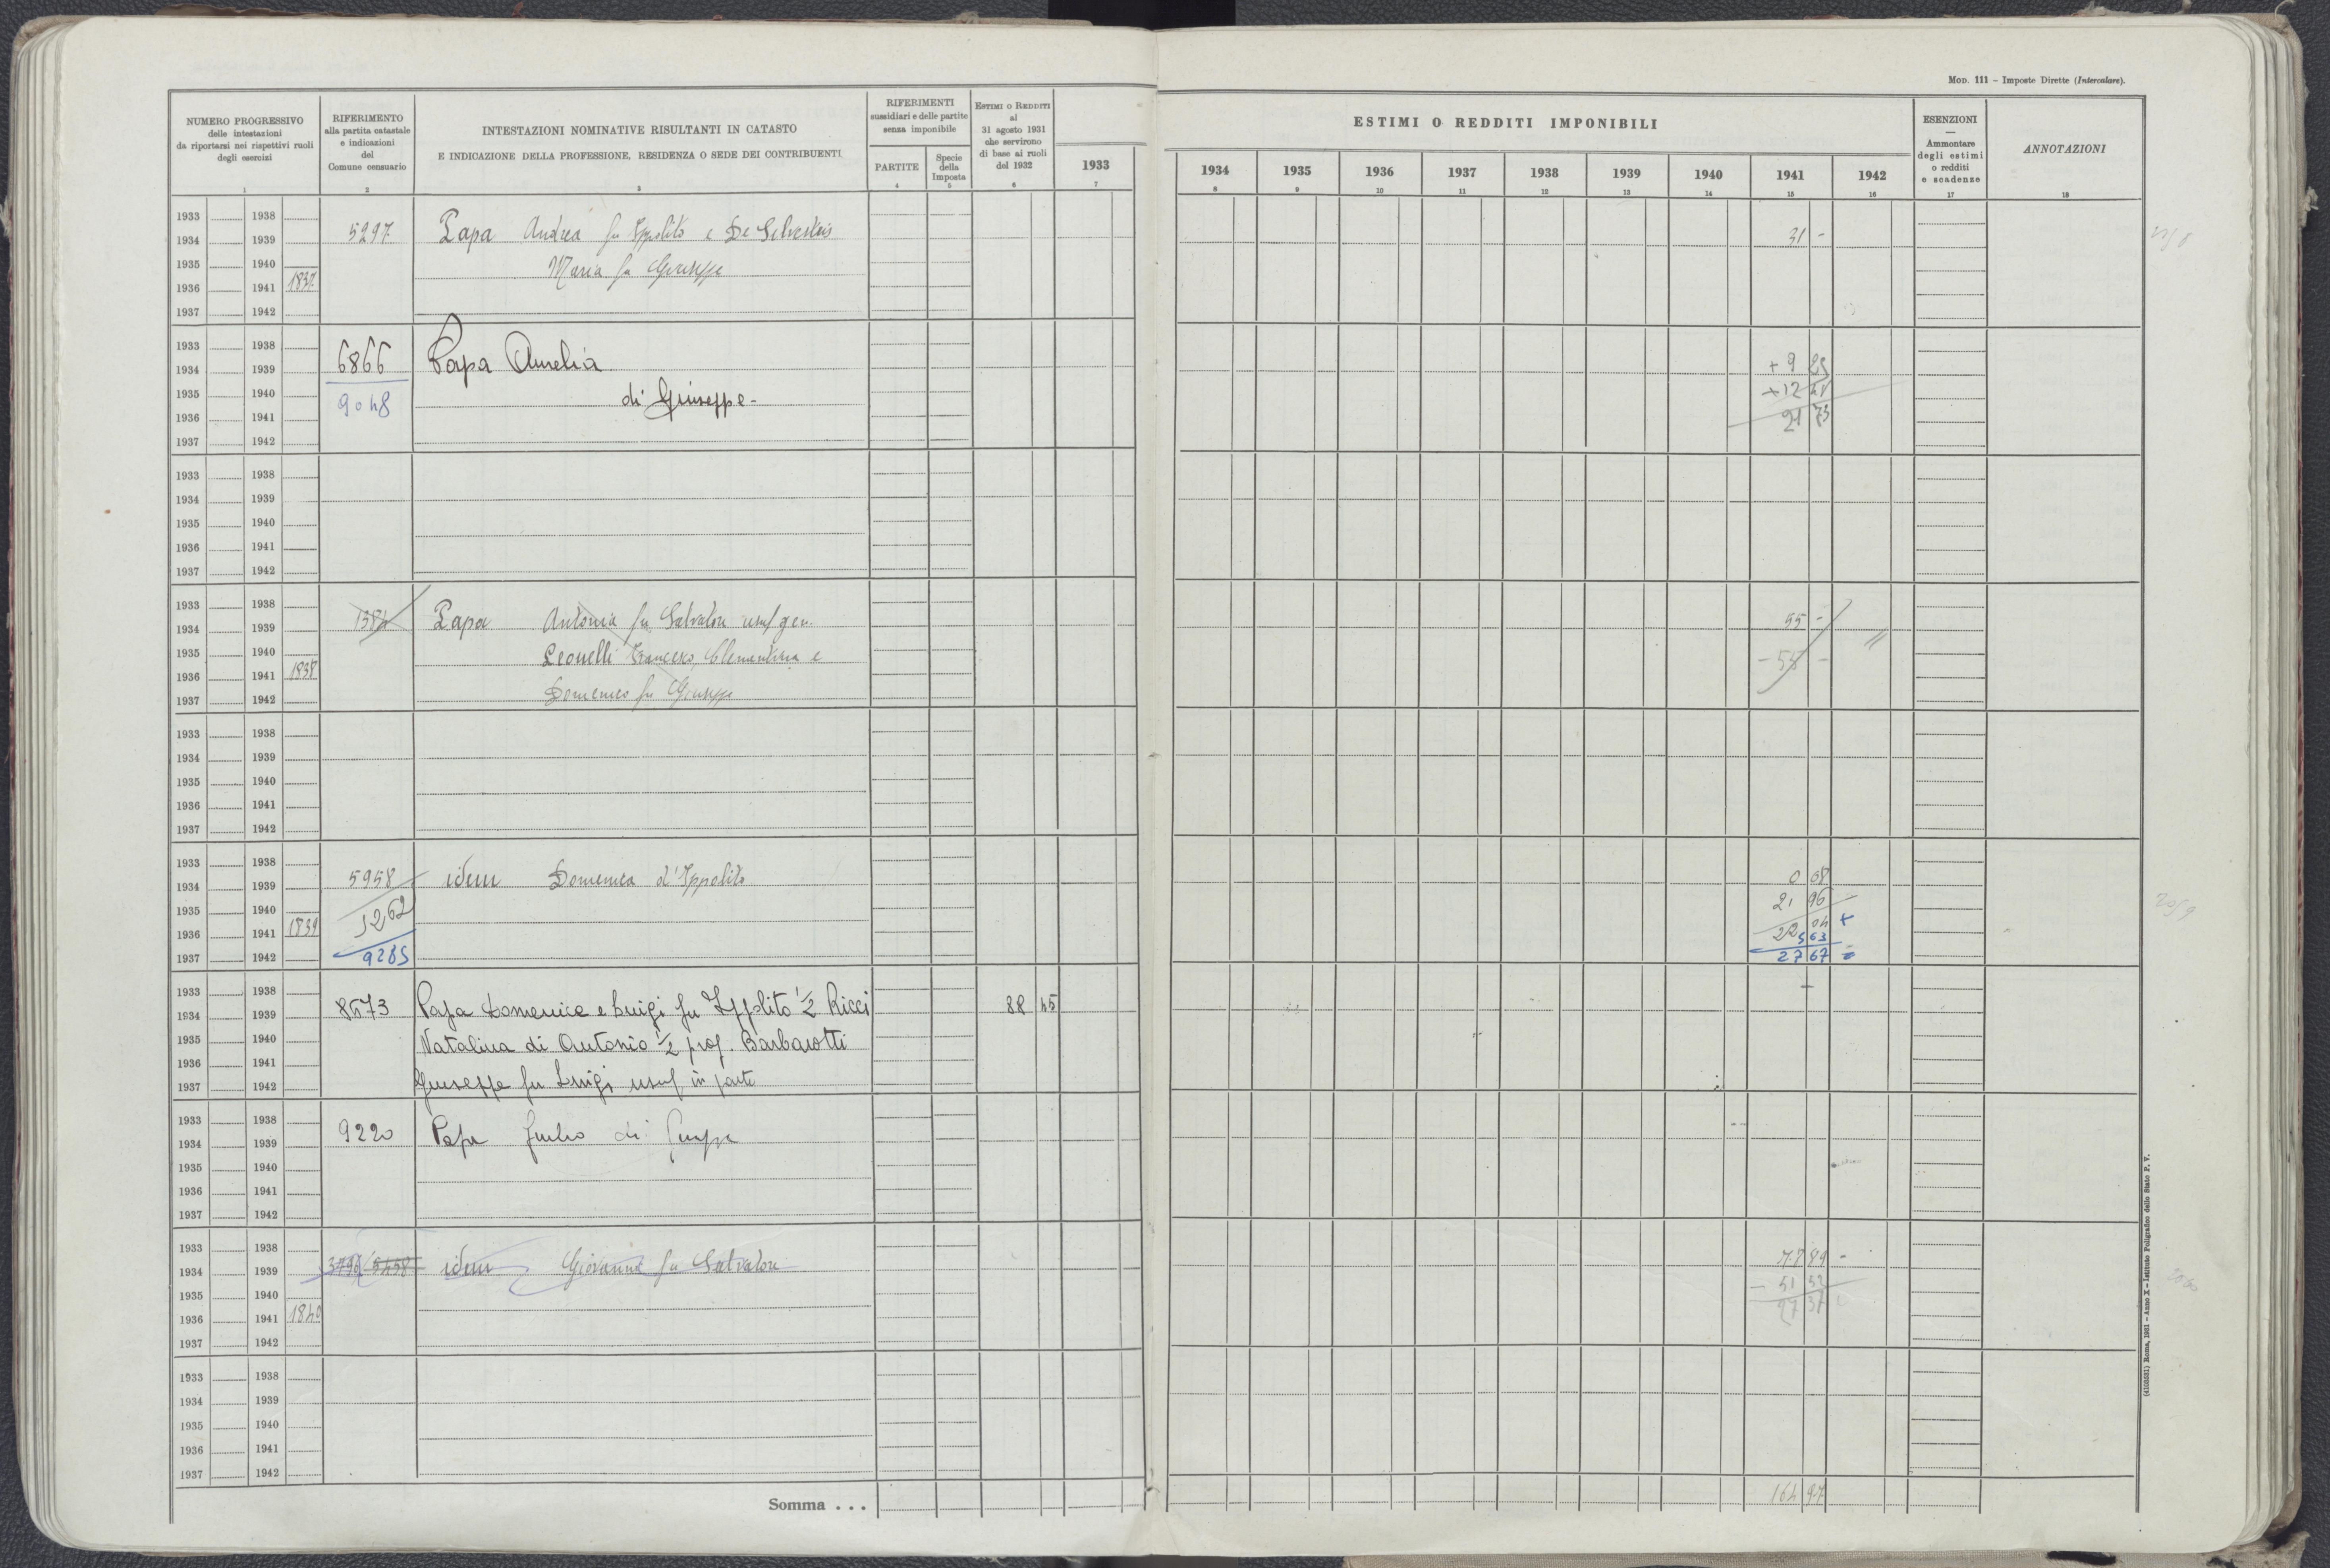 MOD. 111 – Imposte Dirette (Intercalare).
NUMERO PROGRESSIVO
delle intestazioni
da riportarsi nei rispettivi ruoli
degli esercizi
1
RIFERIMENTO
alla partita catastale
e indicazioni
del
Comune censuario
2
INTESTAZIONI NOMINATIVE RISULTANTI IN CATASTO
E INDICAZIONE DELLA PROFESSIONE, RESIDENZA O SEDE DEI CONTRIBUENTI
3
RIFERIMENTI
sussidiari e delle partite
senza imponibile
PARTITE
4
Specie
della
Imposta
5
ESTIMI O REDDITI
al
31 agosto 1931
che servirono
di base ai ruoli
del 1932
6
1933
7
ESTIMI O REDDITI IMPONIBILI
1934 1935 1936 1937 1938 1939 1940 1941 1942
8 9 10 11 12 13 14 15 16
ESENZIONI
—
Ammontare
degli estimi
o redditi
e scadenze
17
ANNOTAZIONI
18
1933 1938
1934 1939 5297 Papa Andrea fu Ippolito e De Silvestris 31 -
1935 1940 Maria fu Giuseppe
1936 1941 1837
1937 1942
1933 1938
1934 1939 6866 Papa Aurelia + 9 25
1935 1940 9048 di Giuseppe - +12
1936 1941 21 73
1937 1942
1933 1938
1934 1939
1935 1940
1936 1941
1937 1942
1933 1938
1934 1939 Papa Antonia fu Salvatore usuf gen. 55 -
1935 1940 Leonelli Francesco, Clementina e - 55 -
1936 1941 1838
1937 1942 Domenico fu Giuseppe
1933 1938
1934 1939
1935 1940
1936 1941
1937 1942
1933 1938
1934 1939 5958 idem Domenica d'Ippolito 0 08
1935 1940 21 96
1936 1941 1839 22 04 +
5 63
1937 1942 9285 27 67 =
1933 1938
1934 1939 8573 Papa Domenica e Luigi fu Ippolito 1/2 Ricci 88 45
1935 1940 Natalina di Antonio 1/2 prop. Barbarotti
1936 1941
1937 1942 Giuseppe fu Luigi usuf in parte
1933 1938
1934 1939 9220 Papa Giulio di
1935 1940
1936 1941
1937 1942
1933 1938
1934 1939 5458 idem Giovanni fu Salvatore 77 89 -
1935 1940 - 51 52
1936 1941 1840 27 37
1937 1942
1933 1938
1934 1939
1935 1940
1936 1941
1937 1942
Somma . . . 164 97
Roma, 1931 – Anno X – Istituto Poligrafico dello Stato P. V.